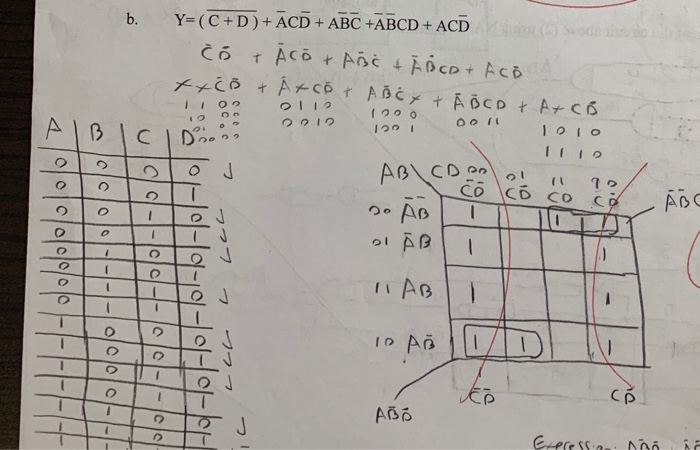 b. Y= (C̅ ̅+̅ ̅D̅) + A̅CD̅ + AB̅C̅ +A̅B̅CD + ACD̅
C̅D̅ + A̅CD̅ + AB̅C̅ + A̅B̅CD + ACD̅
XXC̅D̅ + A̅XCD̅ + AB̅C̅X + A̅B̅CD + AXCD̅
1100 0110 1000 0011 1010
1000 0010 1001 1110
0100
0000
A B C D
0 0 0 0 ✓
0 0 0 1
0 0 1 0 ✓
0 0 1 1 ✓
0 1 0 0 ✓
0 1 0 1
0 1 1 0 ✓
0 1 1 1
1 0 0 0 ✓
1 0 0 1 ✓
1 0 1 0 ✓
1 0 1 1
1 1 0 0 ✓
AB\CD 00 01 11 10
C̅D̅ C̅D CD CD̅
00 A̅B̅ 1 1 1
01 A̅B 1 1
11 AB 1 1
10 AB̅ 1 1 1
A̅B̅C
C̅D̅ CD̅
AB̅D̅